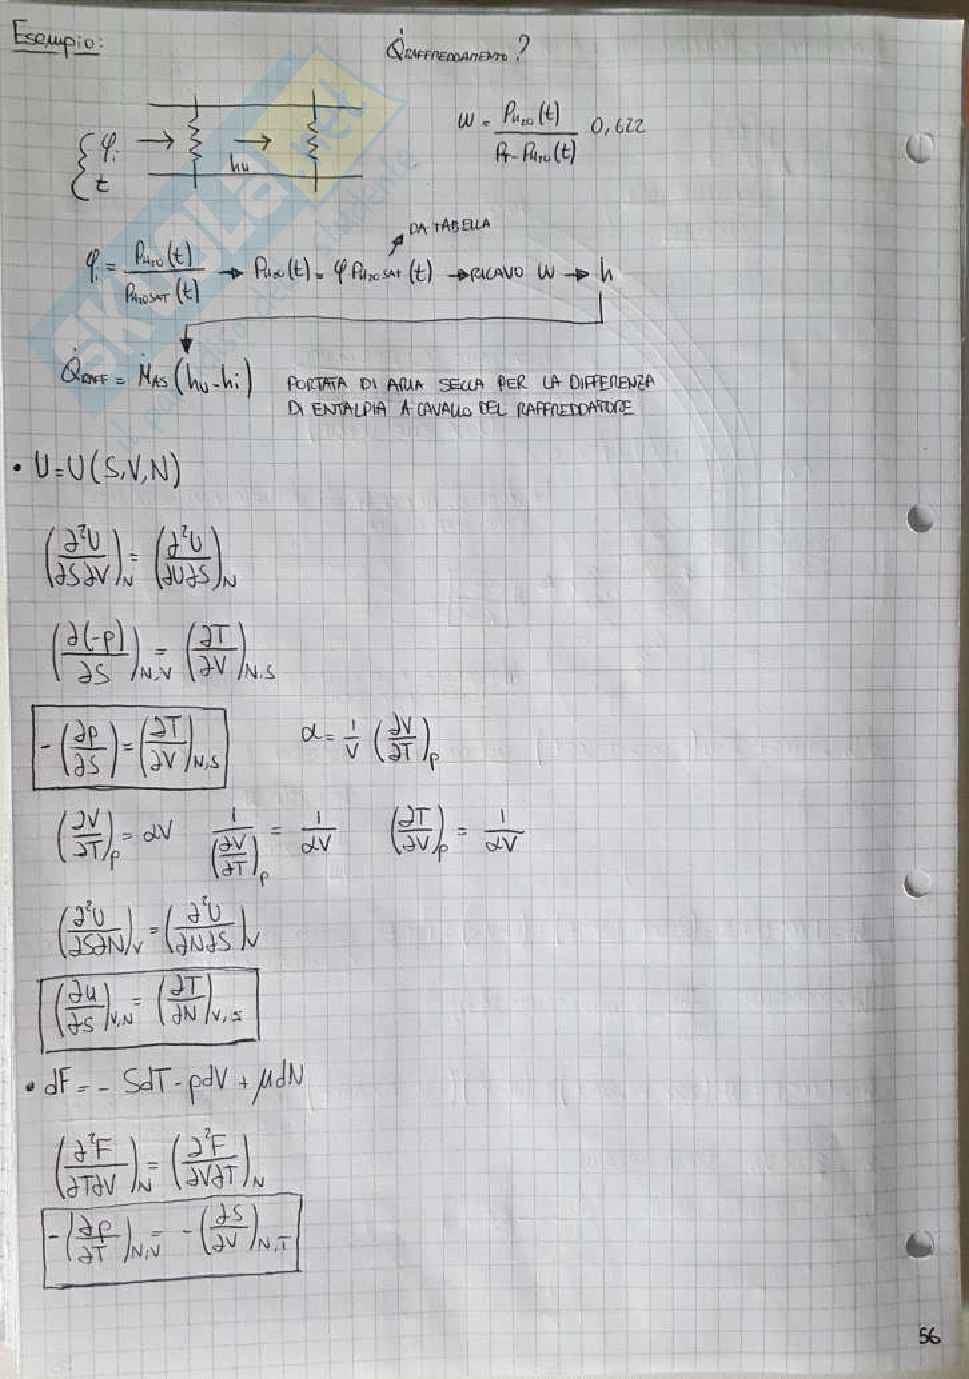 Esempio:
Q̇RAFFREDDAMENTO?
φi
t
hu
ω = PH2O(t) / (PT - PH2O(t)) 0,622
DA TABELLA
φi = PH2O(t) / PH2OSAT(t) → PH2O(t) = φ PH2OSAT(t) → RICAVO ω → h
Q̇RAFF = ṀAS (hu - hi) PORTATA DI ARIA SECCA PER LA DIFFERENZA
DI ENTALPIA A CAVALLO DEL RAFFREDDATORE
• U = U(S,V,N)
(∂²U/∂S∂V)N = (∂²U/∂V∂S)N
(∂(-p)/∂S)N,V = (∂T/∂V)N,S
-(∂p/∂S) = (∂T/∂V)N,S
α = 1/V (∂V/∂T)p
(∂V/∂T)p = αV 1/(∂V/∂T)p = 1/αV (∂T/∂V)p = 1/αV
(∂²U/∂S∂N)V = (∂²U/∂N∂S)V
(∂u/∂S)V,N = (∂T/∂N)V,S
• dF = - SdT - pdV + μdN
(∂²F/∂T∂V)N = (∂²F/∂V∂T)N
-(∂p/∂T)N,V = -(∂S/∂V)N,T
56
SKUOLA.net